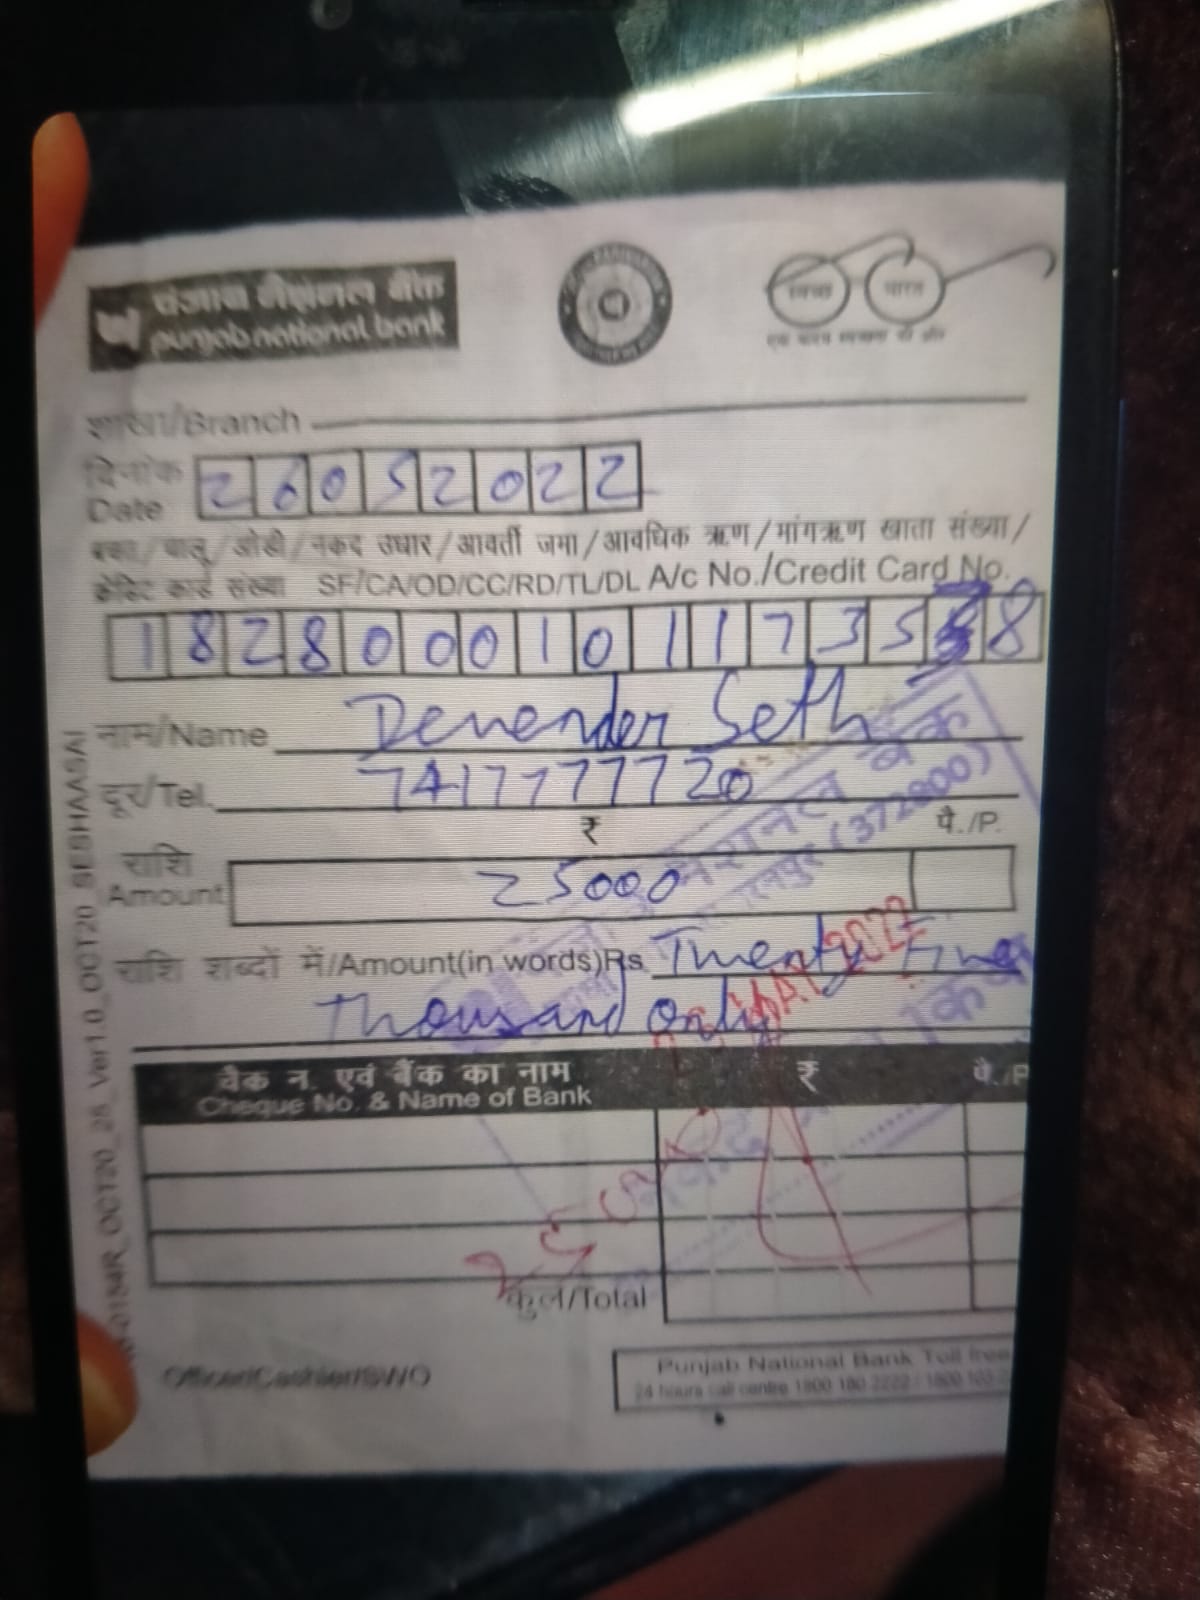 पंजाब नैशनल बैंक
punjab national bank
स्वच्छ भारत
एक कदम स्वच्छता की ओर
शाखा/Branch
दिनांक
Date 26052022
बचत/चालू/ओडी/नकद उधार/आवर्ती जमा/आवधिक ऋण/मांगऋण खाता संख्या/
क्रेडिट कार्ड संख्या SF/CA/OD/CC/RD/TL/DL A/c No./Credit Card No.
18280001011735 8
नाम/Name Devender Seth
दूर/Tel. 7417777720
₹ पै./P.
राशि
Amount 25000
राशि शब्दों में/Amount(in words)Rs Twenty Five
Thousand Only
चैक न. एवं बैंक का नाम ₹ पै./P
Cheque No. & Name of Bank
कुल/Total
Officer/Cashier/SWO
Punjab National Bank Toll free
24 hours call centre 1800 180 2222 / 1800 103 2
OCT20_25_Ver1.0_OCT20_SESHAASAI
नेशनल बैंक
(372800)
2022